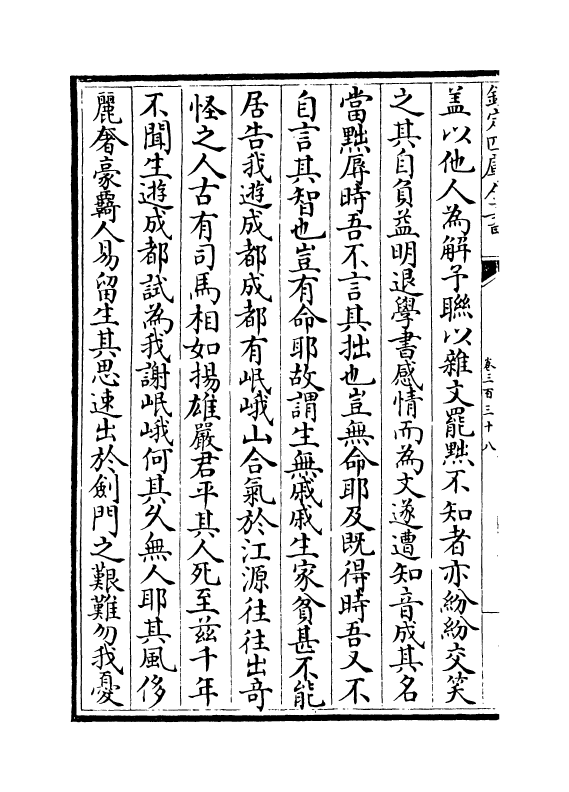 欽定四庫全書
卷三百三十八
盖以他人為解予聮以雜文罷黜不知者亦紛紛交笑
之其自負益明退學書感情而為文遂遭知音成其名
當黜辱時吾不言其拙也豈無命耶及既得時吾又不
自言其智也豈有命耶故謂生無戚戚生家貧甚不能
居告我遊成都成都有岷峨山合氣於江源往往出奇
怪之人古有司馬相如揚雄嚴君平其人死至兹千年
不聞生遊成都試為我謝岷峨何其久無人耶其風侈
麗奢豪羇人易留生其思速出於劍門之艱難勿我憂